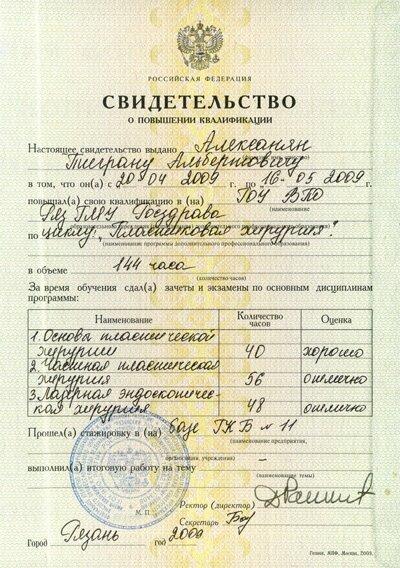 РОССИЙСКАЯ ФЕДЕРАЦИЯ
СВИДЕТЕЛЬСТВО
О ПОВЫШЕНИИ КВАЛИФИКАЦИИ
Настоящее свидетельство выдано Алексанян
Тиграну Альбертовичу
в том, что он(а) с 20 04 2009 г. по 16-05 2009 г.
повышал(а) свою квалификацию в (на) ГОУ ВПО
(наименование
Ряз ГМУ Росздрава
по циклу: "Пластиковая хирургия".
(наименование программы дополнительного профессионального образования)
в объеме 144 часа
(количество часов)
За время обучения сдал(а) зачеты и экзамены по основным дисциплинам
программы:
Наименование Количество часов Оценка
1. Основы пластической хирургии 40 хорошо
2. Частная пластическая хирургия 56 отлично
3. Лазерная эндоскопическая хирургия 48 отлично
Прошел(а) стажировку в (на) базе ГКБ № 11
(наименование предприятия,
организации, учреждения)
выполнил(а) итоговую работу на тему –
(наименование темы)
М. П.
Ректор (директор)
Секретарь
Город Рязань год 2009
Гознак, МПФ, Москва, 2009.